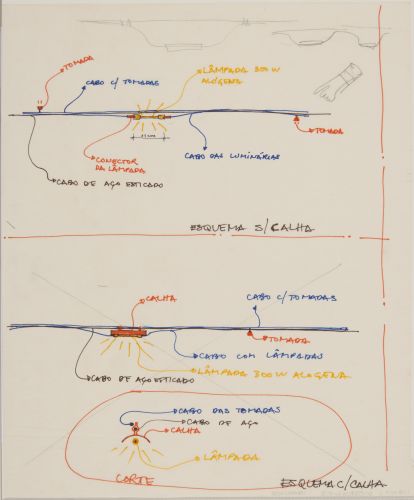 TOMADA
CABO C/ TOMADAS
LÂMPADA 300W
ALÓGENA
TOMADA
CONECTOR
DA LÂMPADA
CABO DAS LUMINÁRIAS
CABO DE AÇO ESTICADO
ESQUEMA S/CALHA
CALHA
CABO C/TOMADAS
TOMADA
CABO COM LÂMPADAS
LÂMPADA 300W ALOGENA
CABO DE AÇO ESTICADO
CABO DAS TOMADAS
CABO DE AÇO
CALHA
LÂMPADA
CORTE
ESQUEMA C/CALHA